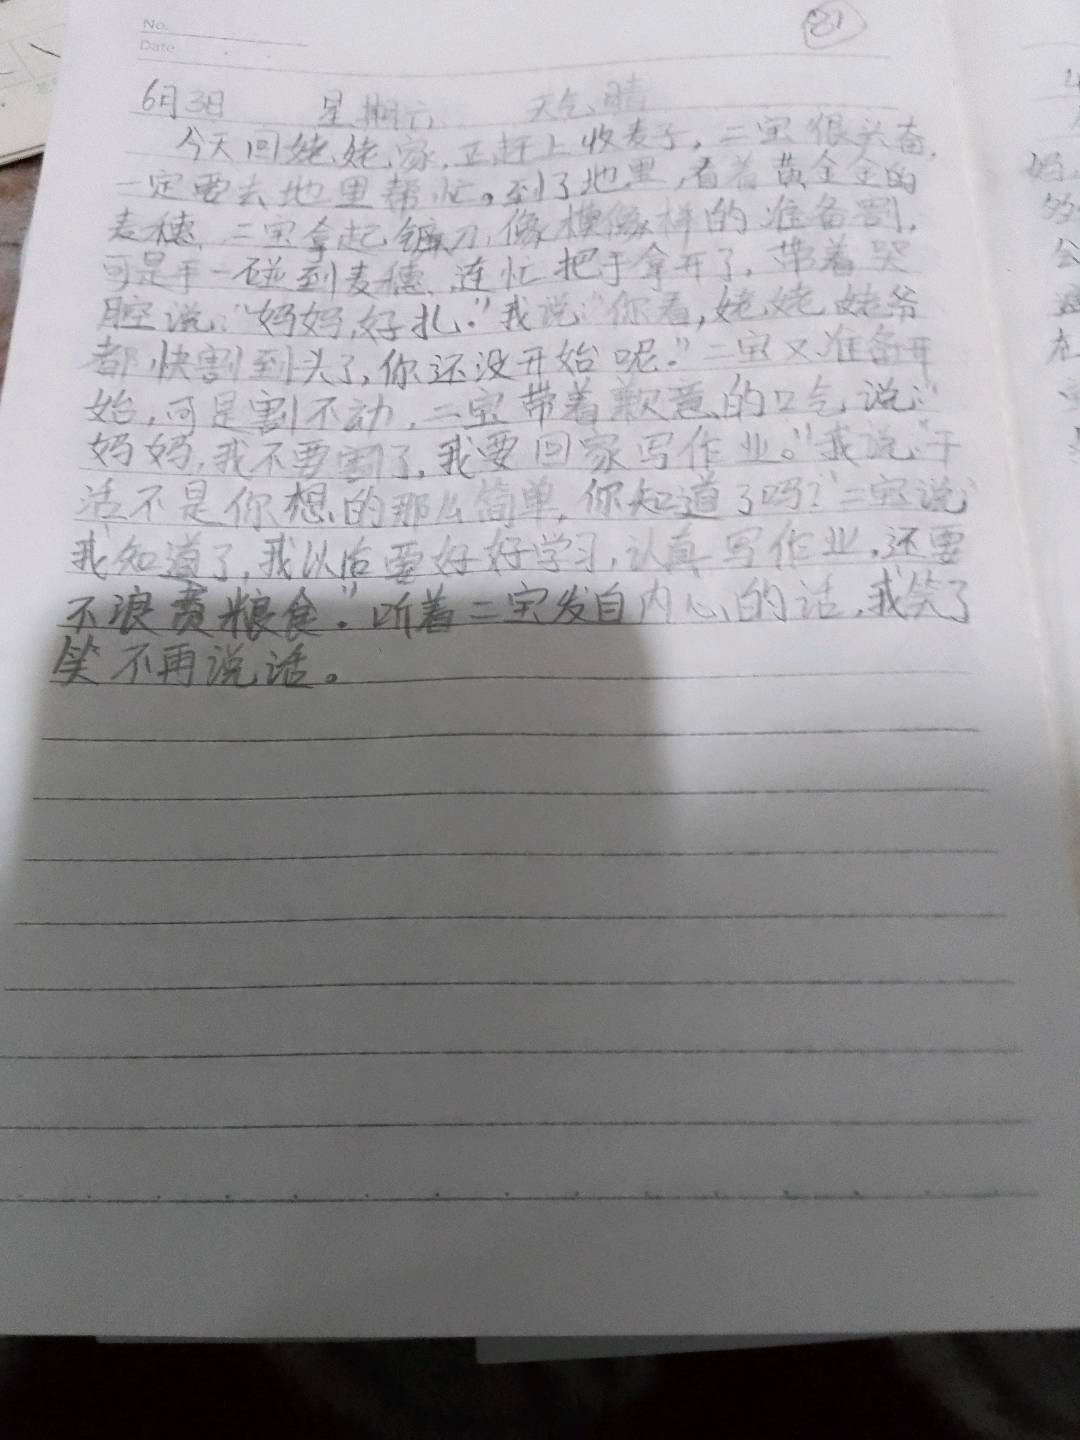 No.
81
Date
6月3日 星期六 天气晴
今天回姥姥家,正赶上收麦子,二宝很兴奋,
一定要去地里帮忙。到了地里,看着黄金金的
麦穗,二宝拿起镰刀,像模像样的准备割,
可是手一碰到麦穗,连忙把手拿开了,带着哭
腔说:“妈妈,好扎.”我说:“你看,姥姥姥爷
都快割到头了,你还没开始呢.”二宝又准备开
始,可是割不动,二宝带着歉意的口气说:“
妈妈,我不要割了,我要回家写作业。”我说:“干
活不是你想的那么简单,你知道了吗?”二宝说“
我知道了,我以后要好好学习,认真写作业,还要
不浪费粮食.”听着二宝发自内心的话,我笑了
笑不再说话。